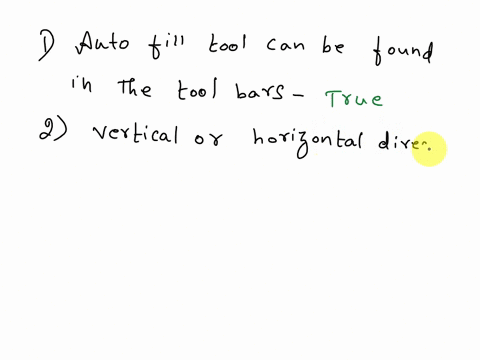 1) Auto fill tool can be found
in the tool bars - True
2) vertical or horizontal direc